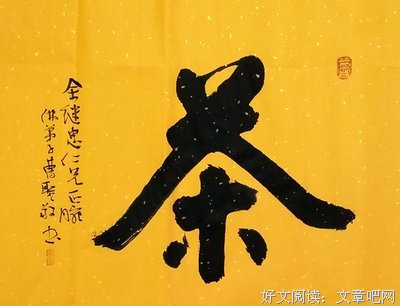 茶
金继忠仁兄正腕
佛弟子曹书
好文阅读：文章吧网